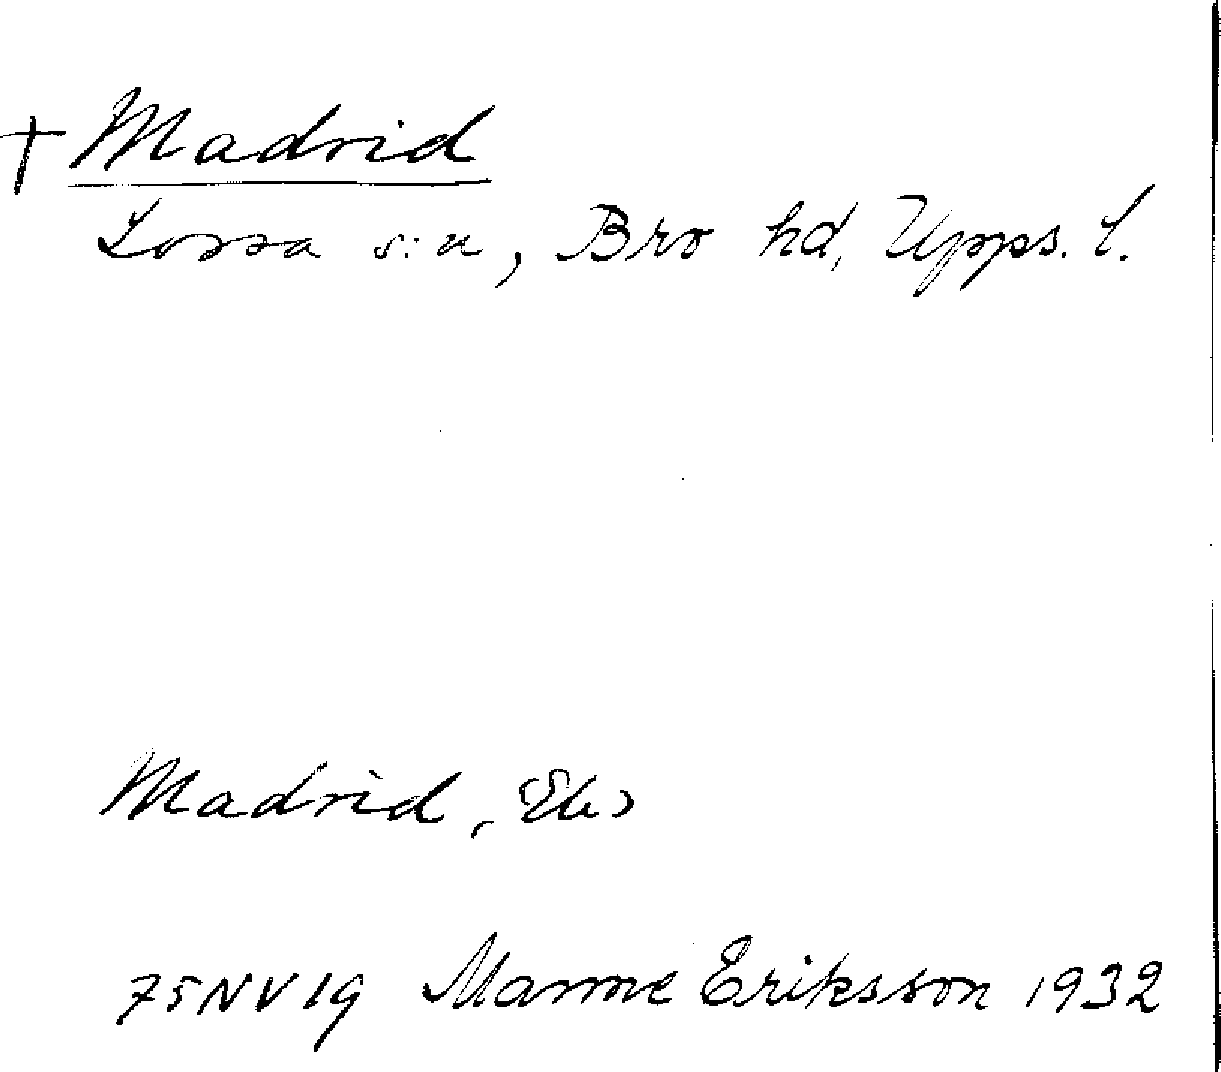 † Madrid
Lossa s:n, Bro hd, Upps. l.
Madrid,
75NV19 Manne Eriksson 1932